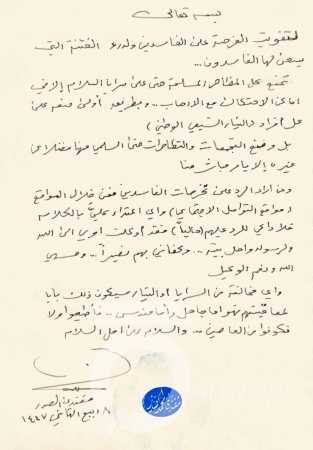 بسمه تعالى
لتفويت الفرصة على الفاسدين ولدرء الفتنة التي
يسعى لها الفاسدون...
تمنع كل المظاهر المسلحة حتى على سرايا السلام بالأخص
اماكن الاحتكاك مع الاحباب... وبطريقة أولى منعه على
كل أفراد (التيار الشيعي الوطني)
بل ومنع التجمعات والتظاهرات حتى السلمي منها فضلا عن
غيره الا بأمر مباشر منا
ومن اراد الرد على الفاسدين فمن خلال المواقع
(مواقع التواصل الاجتماعي) واي اعتداء علي بالكلام
فلا داعي للرد عليهم (حاليا) فقد أوكلت امري الى الله
ولرسوله واهل بيته... وكفاني بهم نصيرا... وحسبي
الله ونعم الوكيل
واي مخالفة من السرايا او التيار سيكون ذلك بابا
لمعاقبتهم فهو اما جاهل واما مندس... فأطيعوا ولا
تكونوا من العاصين... والسلام على اهل السلام
مقتدى الصدر
ربيع الثاني ١٤٤٧